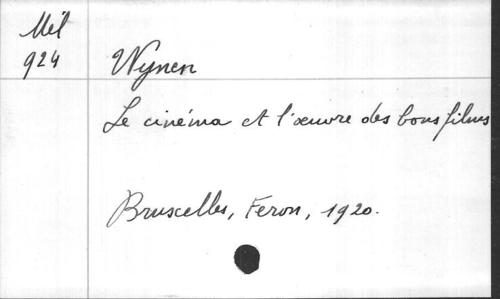 Mél
924
Wynen
Le cinéma et l'œuvre des bons films
Bruxelles, Feron, 1920.